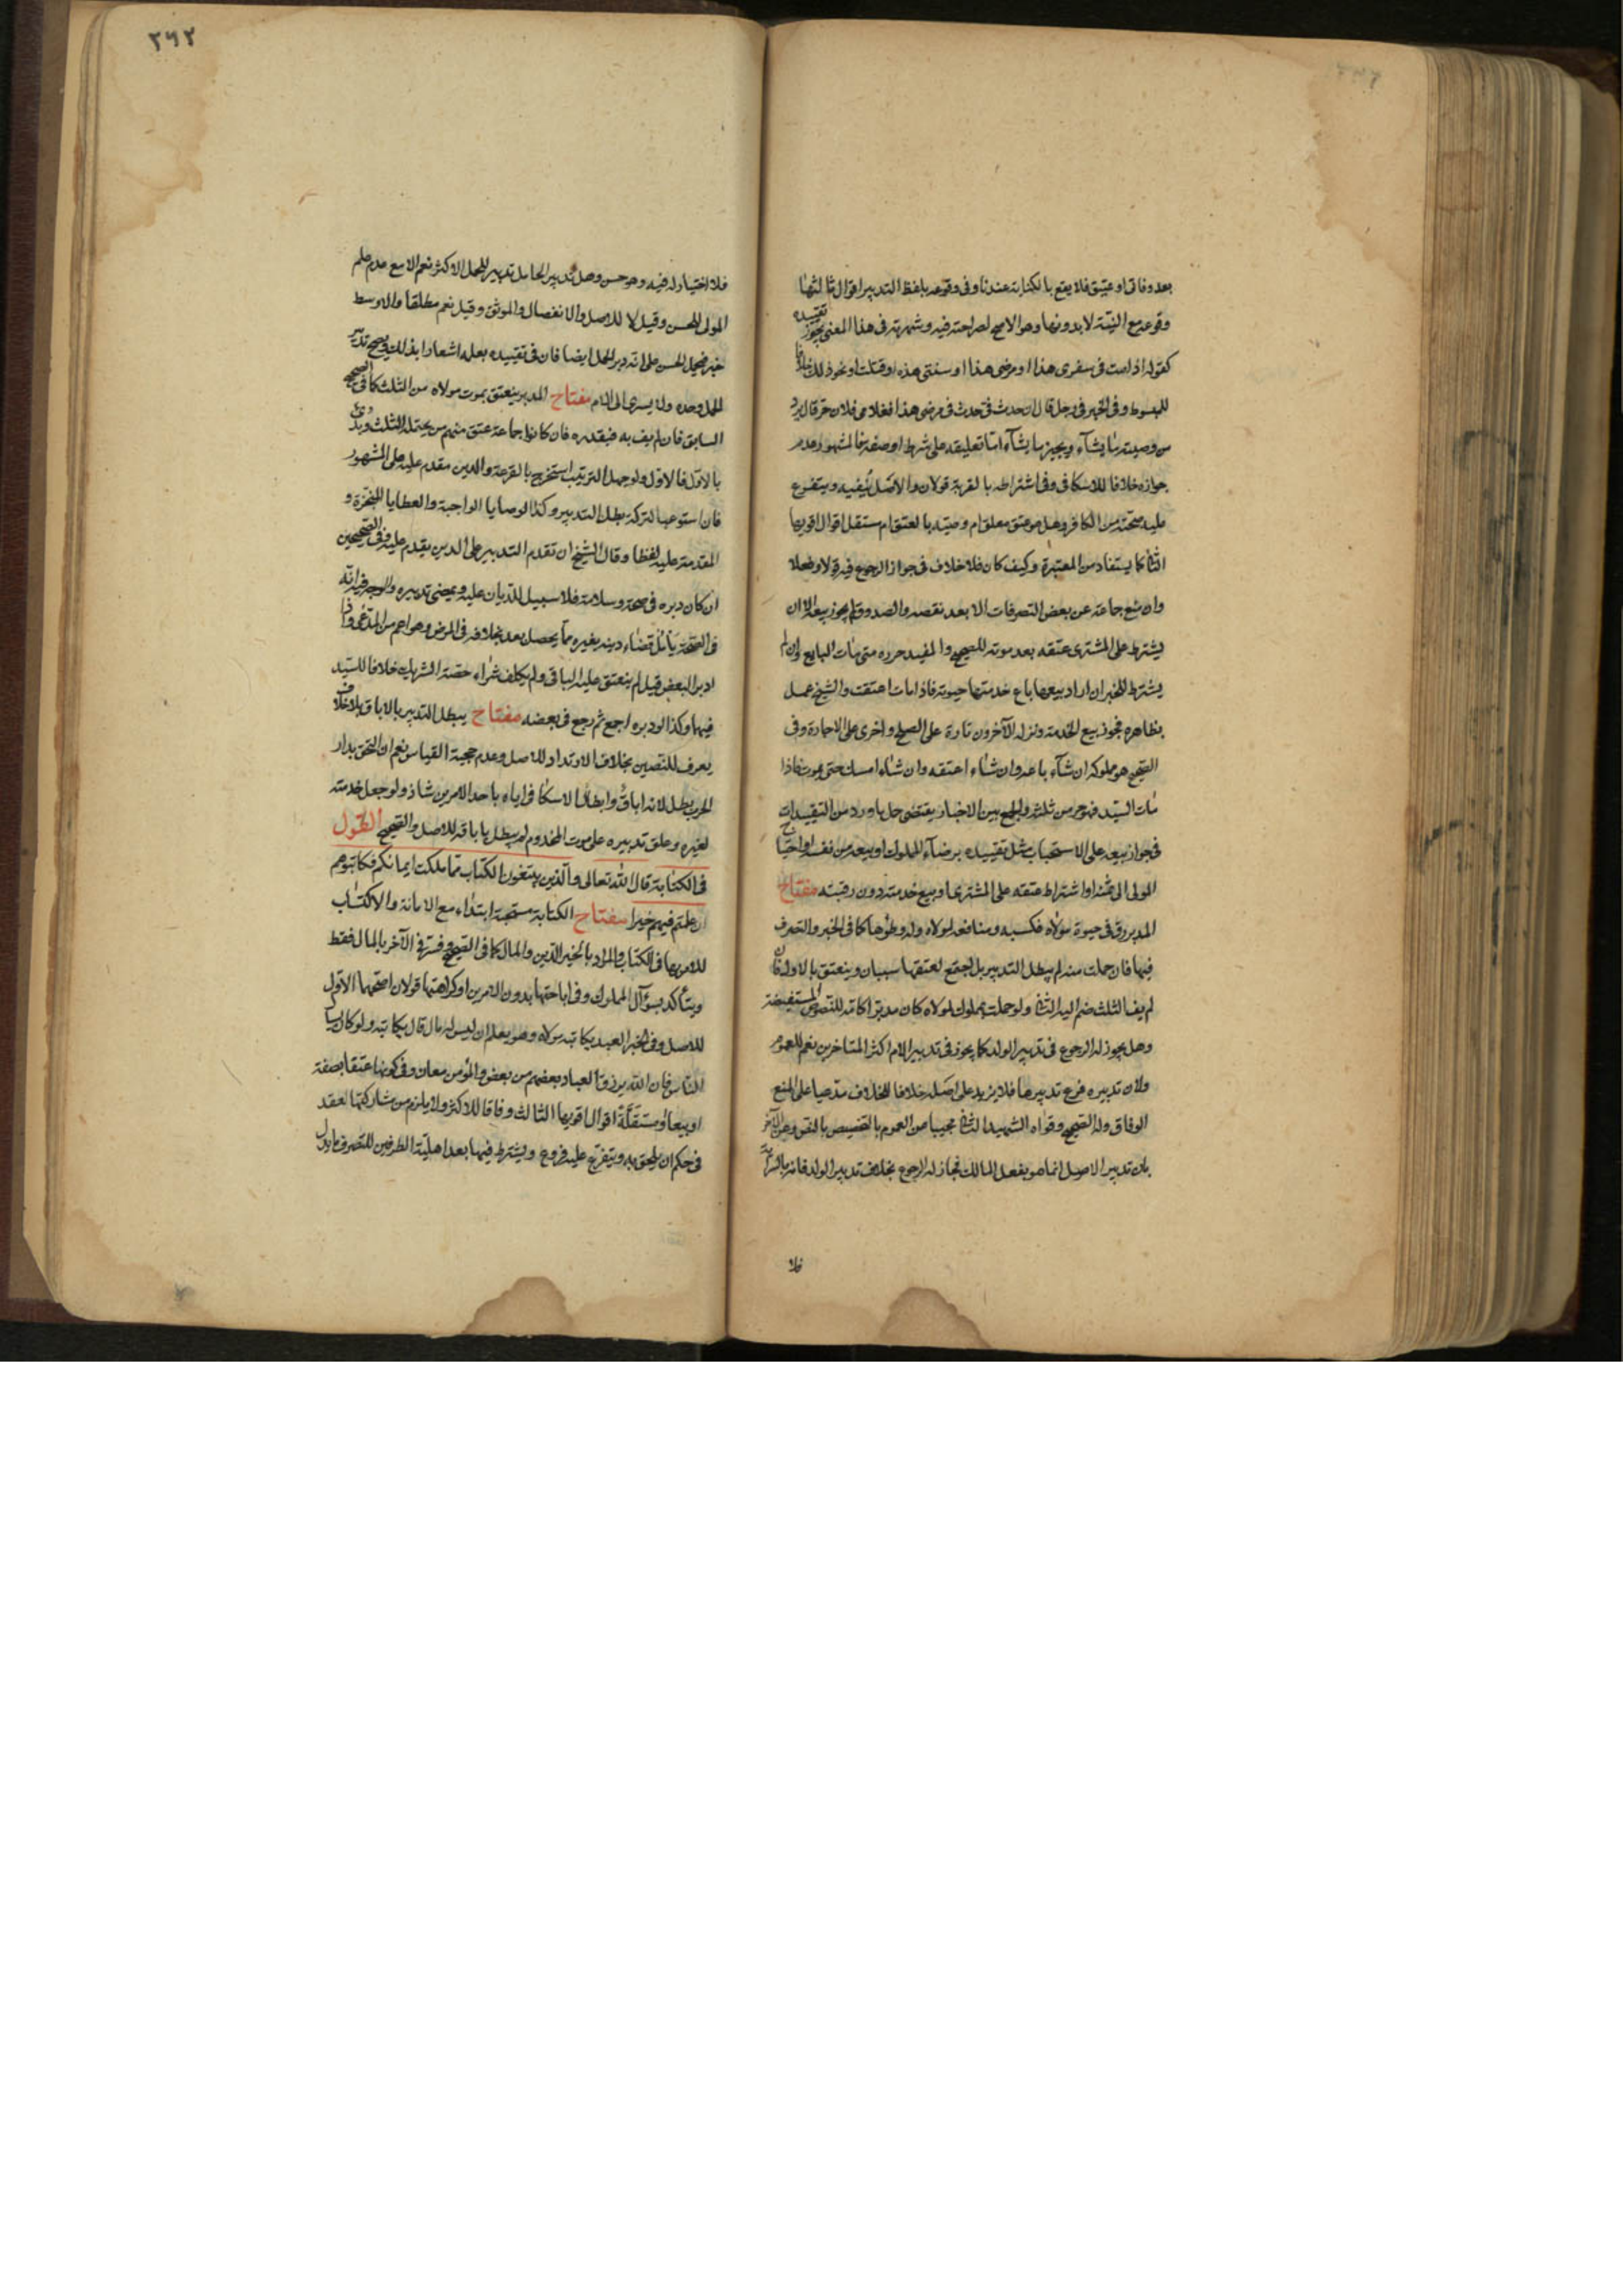 بعد وفاتي او عتيق فلا يقع بالكناية عندنا وفي وقوعه بلفظ التدبير اقوال ثالثها
وقوعه مع النية لا بدونها وهو الاصح لصراحته فيه وشهرته في هذا المعنى ويجوز تقييده
كقوله اذا مت في سفري هذا او مرضي هذا او سنتي هذه او قتلت او نحو ذلك خلافا
للمبسوط وفي الخبر في رجل قال ان حدث بي حدث في مرضي هذا فغلامي فلان حر قال يرد
من وصيته ما يشآء ويجيز ما يشآء اما تعليقه على شرط او صفة فالمشهور عدم
جوازه خلافا للاسكافي وفي اشتراطه بالقربة قولان والاصل نفيه ويتفرع
عليه صحته من الكافر وهل هو عتق معلق ام وصية بالعتق ام مستقل اقوال اقويها
الثاني كما يستفاد من المعتبرة وكيف كان فلا خلاف في جواز الرجوع فيه قولا وفعلا
وان منع جماعة عن بعض التصرفات الا بعد نقضه والصدوق لم يجوز بيعه الا ان
يشترط على المشتري عتقه بعد موته للصحيح والمفيد حرره متى مات البايع وان لم
يشترط للخبر ان اراد بيعها باع خدمتها حيوته فاذا مات اعتقت والشيخ عمل
بظاهره فجوز بيع الخدمة ونزله الآخرون تارة على الصلح واخرى على الاجارة وفي
الصحيح هو مملوكه ان شآء باعه وان شاء اعتقه وان شاء امسك حتى يموت فاذا
مات السيد فهو حر من ثلثه والجمع بين الاخبار يقتضي حمل ما ورد من التقييدات
في جواز بيعه على الاستحباب مثل تقييده برضاء المملوك او بيعه من نفسه او احتياج
المولى الى ثمنه او اشتراط عتقه على المشتري او بيع خدمته دون رقبته مفتاح
المدبر رق في حيوة مولاه فكسبه ومنافعه لمولاه وله وطؤها كما في الخبر والتصرف
فيها فان حملت منه لم يبطل التدبير بل اجتمع لعتقها سببان وينعتق بالاول فان
لم يف الثلث ضم اليه الثاني ولو حملت بمملوك لمولاه كان مدبرا كامه للنصوص المستفيضة
وهل يجوز له الرجوع في تدبير الولد كما يجوز في تدبير الام اكثر المتاخرين نعم للعموم
ولان تدبيره فرع تدبيرها فلا يزيد على اصله خلافا للخلاف مدعيا على المنع
الوفاق وله الصحيح وقواه الشهيد الثاني مجيبا عن العموم بالتخصيص بالنص وعن الآخر
بان تدبير الاصول انما هو بفعل المالك فجاز له الرجوع بخلاف تدبير الولد فانه بالسراية
فلا
٢٦٢
فلا اختيار له فيه وهو حسن وهل تدبير الحامل تدبير للحمل الاكثر نعم الا مع عدم علم
المولى للحسن وقيل لا للاصل والانفصال والموثق وقيل نعم مطلقا والاوسط
خير فيحمل الحسن على انه دبر الحمل ايضا فان في تقييده بعلمه اشعارا بذلك ويصح تدبير
الحمل وحده ولا يسري الى الام مفتاح المدبر ينعتق بموت مولاه من الثلث كما في الصحيح
السابق فان لم يف به فبقدره فان كانوا جماعة عتق منهم من يحتمله الثلث وبدئ
بالاول فالاول ولو جهل الترتيب استخرج بالقرعة والدين مقدم عليه على المشهور
فان استوعب التركة بطل التدبير وكذا الوصايا الواجبة والعطايا المنجزة و
المقدمة عليه لفظا وقال الشيخ ان تقدم التدبير على الدين يقدم عليه ففي الصحيحين
ان كان دبره في صحة وسلامة فلا سبيل للديان عليه ويمضي تدبيره والوجه فيه انه
في الصحة يأمل قضاء دينه بغيره مما يحصل بعد بخلافه في المرض وهو اعم من المدعى واذا
دبر البعض قيل لم ينعتق عليه الباقي ولم يكلف شراء حصة الشريك خلافا للسيد
فيها وكذا لو دبره اجمع ثم رجع في بعضه مفتاح يبطل التدبير بالاباق بلا خلاف
يعرف للنصين بخلاف الارتداد للاصل وعدم حجية القياس نعم ان التحق بدار
الحرب بطل لانه اباق وابطال الاسكافي اياه باحد الامرين شاذ ولو جعل خدمته
لغيره وعلق تدبيره على موت المخدوم لم يبطل باباقه للاصل والصحيح القول
في الكتابة قال الله تعالى والذين يبتغون الكتاب مما ملكت ايمانكم فكاتبوهم
ان علمتم فيهم خيرا مفتاح الكتابة مستحبة ابتداء مع الامانة والاكتساب
للامر بها في الكتاب والمراد بالخير الدين والمال كما في الصحيح وفسر في الآخر بالمال فقط
ويتأكد بسؤال المملوك وفي اباحتها بدون الامرين او كراهتها قولان اصحهما الاول
للاصل وفي الخبر العبد يكاتبه مولاه وهو يعلم ان ليس له مال قال يكاتبه ولو كان يسأل
الناس فان الله يرزق العباد بعضهم من بعض والمؤمن معان وفي كونها عتقا بصفة
او بيعا او مستقلة اقوال اقويها الثالث وفاقا للاكثر ولا يلزم من مشاركتها لعقد
في حكم ان يلحق به ويتفرع عليه فروع ويشترط فيها بعد اهلية الطرفين للتصرف ما يدل